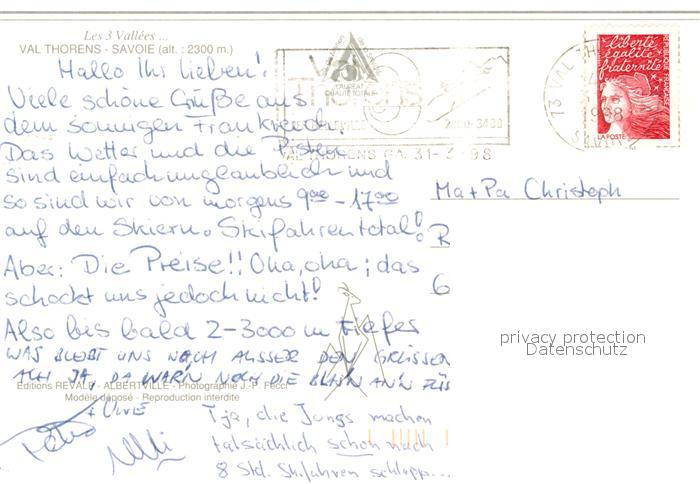 Les 3 Vallées ...
VAL THORENS - SAVOIE (alt. : 2300 m.)
Hallo Ihr Lieben!
Viele schöne Grüße aus
dem sonnigen Frankreich.
Das Wetter und die Pisten
sind einfach unglaublich und
so sind wir von morgens 9⁰⁰ - 17⁰⁰
auf den Skiern. Skifahren total!
Aber: Die Preise!! Oha, oha; das
schockt uns jedoch nicht!
Also bis bald 2-3000 m tiefer
WAS BLEIBT UNS NOCH AUSSER DEN GRÜSSEN
ACH JA, DA WAR'N NOCH DIE BLAS'N AN'N FÜS
Editions REVALP - ALBERTVILLE - Photographie J.-P. Fecci
Modèle déposé - Reproduction interdite
+ UWE
Tja, die Jungs machen
tatsächlich schon nach
8 Std. Skifahren schlapp...
LAURÉAT
QUALITÉ TOTALE
VAL
THORENS
2300-3400
31-3-98
13 VAL TH
liberté
égalité
fraternité
RÉPUBLIQUE FRANÇAISE
LA POSTE
Ma + Pa Christoph
R
6
privacy protection
Datenschutz